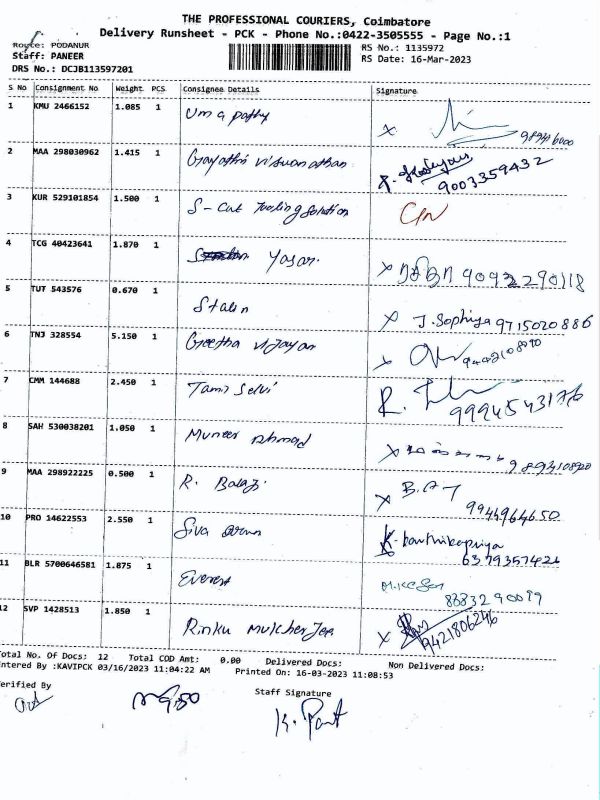 THE PROFESSIONAL COURIERS, Coimbatore
Delivery Runsheet - PCK - Phone No.:0422-3505555 - Page No.:1
Route: PODANUR
Staff: PANEER
DRS No.: DCJB113597201
RS No.: 1135972
RS Date: 16-Mar-2023
S No Consignment No Weight PCS Consignee Details Signature
1 KMU 2466152 1.085 1 Uma pathy X
2 MAA 298030962 1.415 1 Gayathri viswanathan 9003359432
3 KUR 529101854 1.500 1 S-Cut Tooling Solution
4 TCG 40423641 1.870 1 Yasar. X 9092290118
5 TUT 543576 0.670 1 Stalin X J.Sophiya 9715020886
6 TNJ 328554 5.150 1 Geetha vijayan X
7 CMM 144688 2.450 1 Tamil Selvi R. 9994543176
8 SAH 530038201 1.050 1 Muneer Ahmad X
9 MAA 298922225 0.500 1 R. Balaji X B.A 9944964650
10 PRO 14622553 2.550 1 Siva K. karthikapriya 6379357421
11 BLR 5700646581 1.875 1 Everest
12 SVP 1428513 1.850 1 Rinku Mukherjee X 9421806246
Total No. Of Docs: 12 Total COD Amt: 0.00 Delivered Docs: Non Delivered Docs:
Entered By :KAVIPCK 03/16/2023 11:04:22 AM Printed On: 16-03-2023 11:08:53
Verified By
Staff Signature